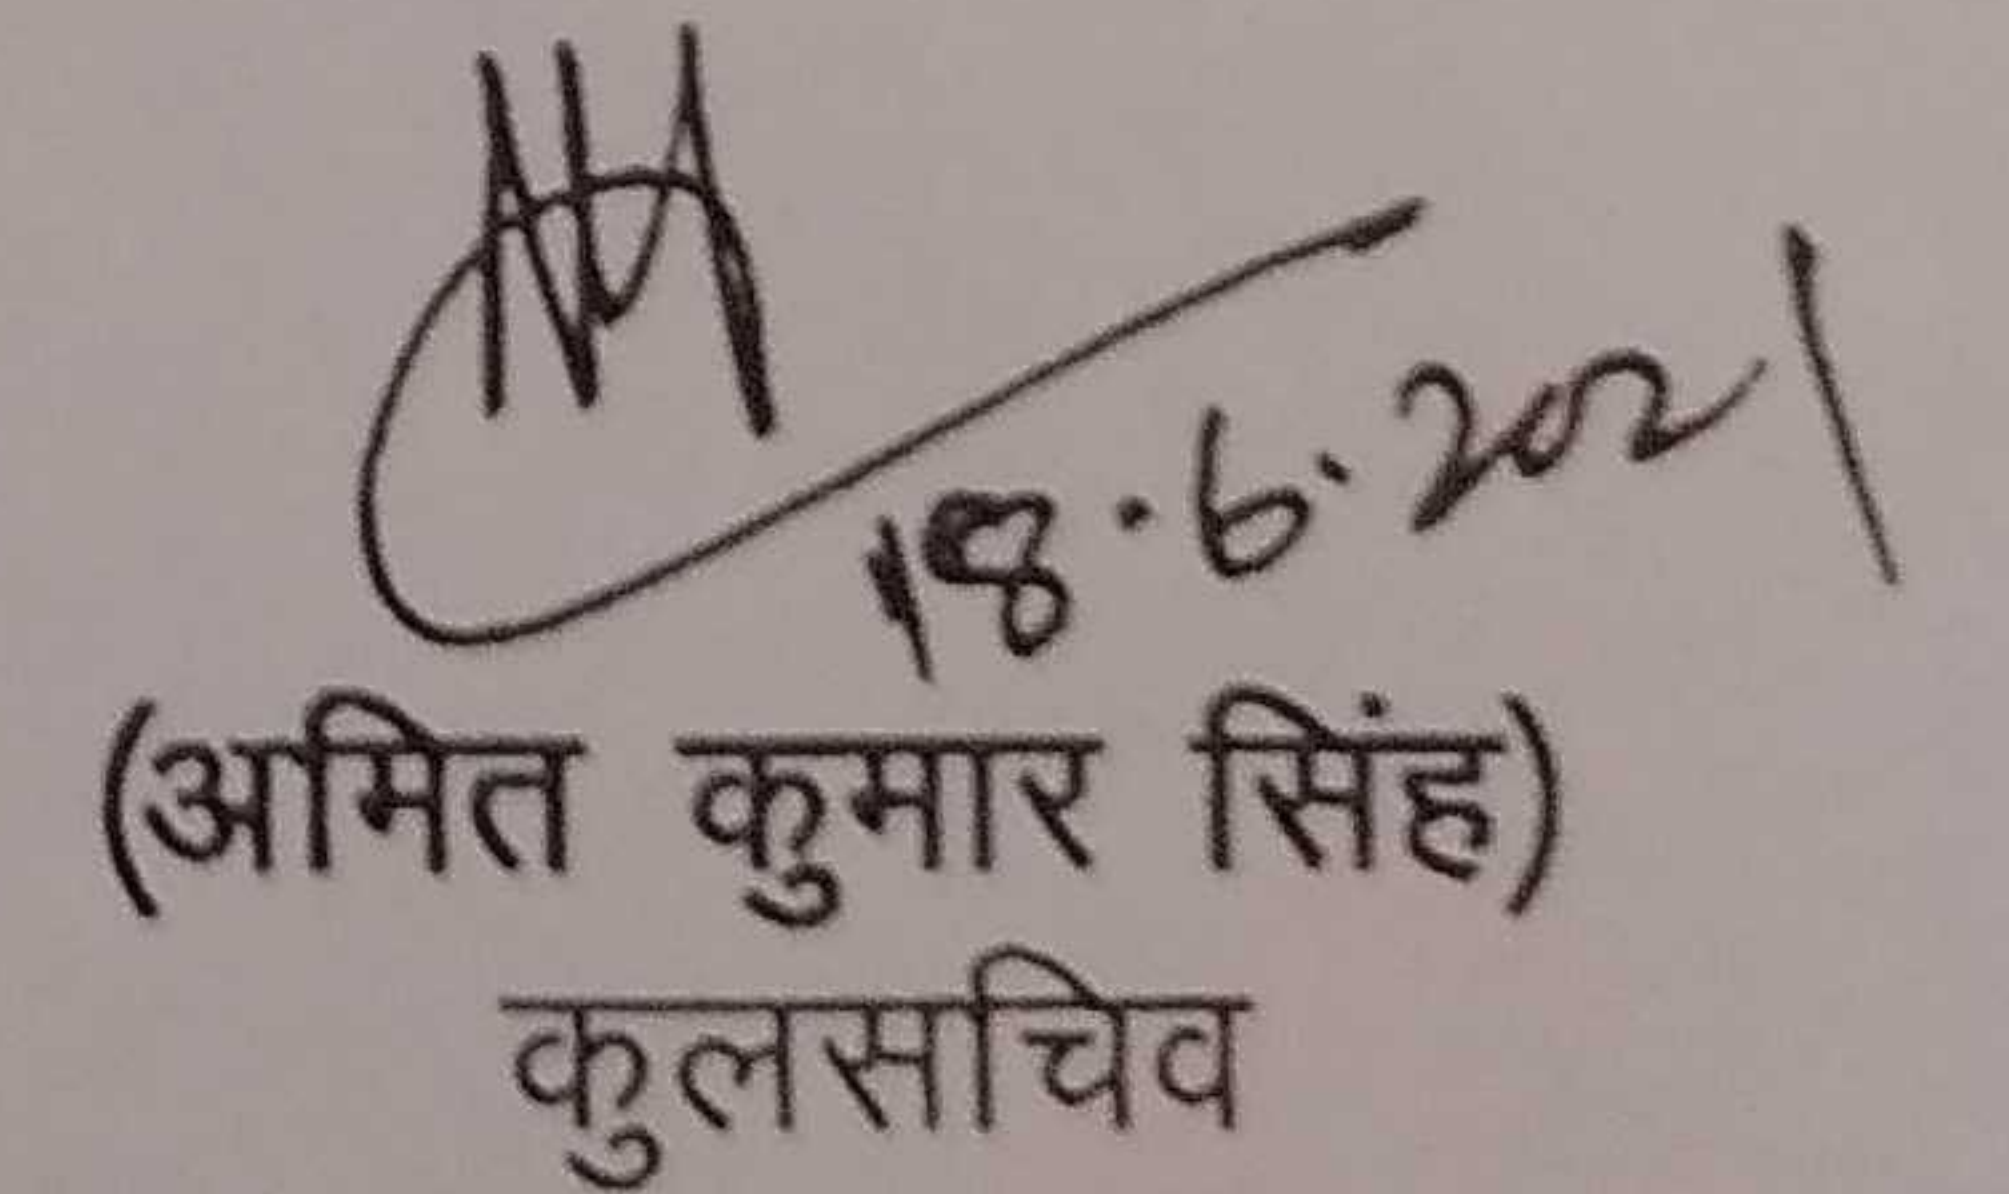 18.6.2021
(अमित कुमार सिंह)
कुलसचिव